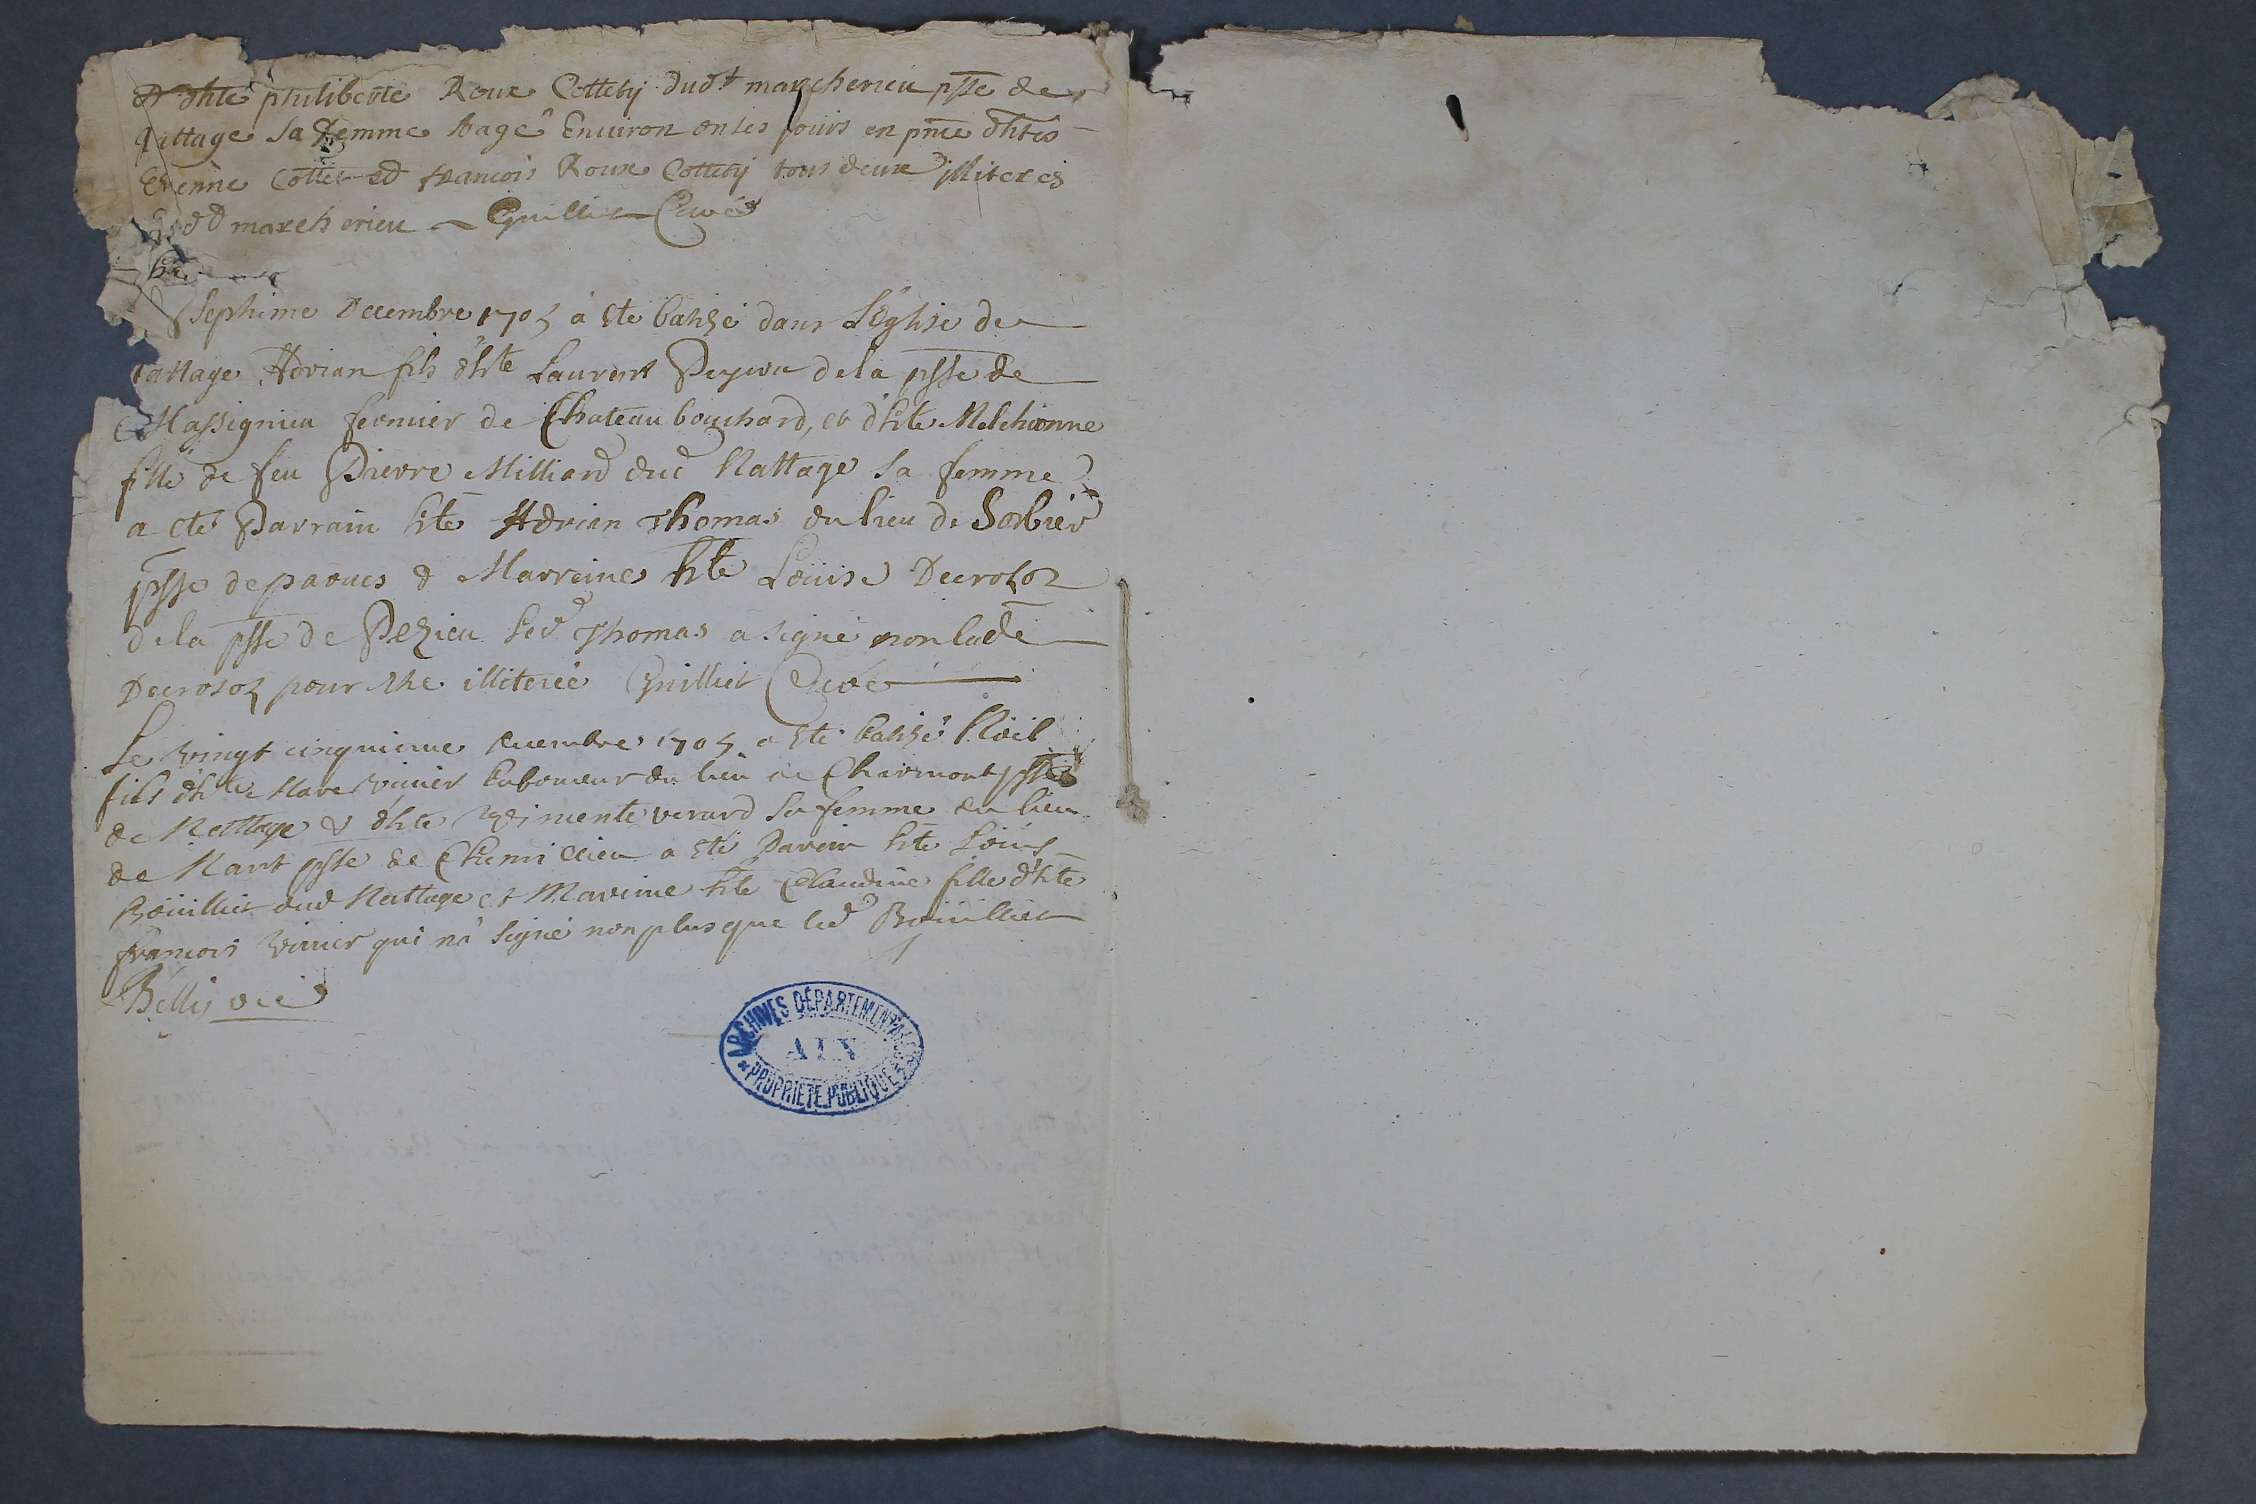 & dhte philiberte Roux Cottety dudt marcherieu psse de
Nattage sa femme aagé Environ onses jours en pnce dhtes
Etienne Cottet et francois Roux Cottety tous deux illiteres
dud marcherieu Guilliet Curé
septieme Decembre 1705 a ete batisé dans L'Eglise de
Nattage Adrian fils dhte Laurent Peysru de la psse de
Massignieu fermier de Chateau bouchard, et dhte Melchionne
fille de feu Pierre Milliard dud Nattage sa femme
a eté Parrain hte Adrian Thomas du lieu de Sorbier
psse de parves & Marreine hte Loüise Decrosoz
de la psse de Pezieu led Thomas a signé non lade
Decrosoz pour etre illiterée Guilliet Curé
Le vingt cinquieme decembre 1705 a eté batisé Nöel
fils dhte Marc vivier laboureur du lieu de Charmont psse
de Nattage & dhte verard sa femme du lieu
de Nant psse de Chemillieu a eté Parein hte Loüis
Boüilliet dud Nattage et Mareine hte Claudine fille dhte
francois vivier qui n'a signé non plus que led Boüilliet
Billiet vic
ARCHIVES DÉPARTEMENTALES
AIN
PROPRIÉTÉ PUBLIQUE